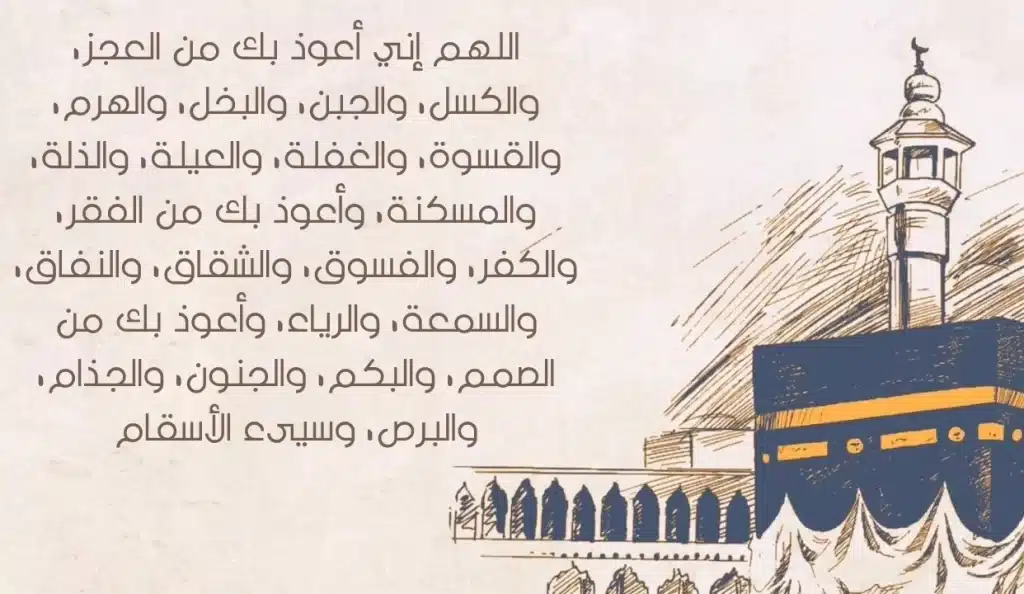 اللهم إني أعوذ بك من العجز،
والكسل، والجبن، والبخل، والهرم،
والقسوة، والغفلة، والعيلة، والذلة،
والمسكنة، وأعوذ بك من الفقر،
والكفر، والفسوق، والشقاق، والنفاق،
والسمعة، والرياء، وأعوذ بك من
الصمم، والبكم، والجنون، والجذام،
والبرص، وسيىء الأسقام